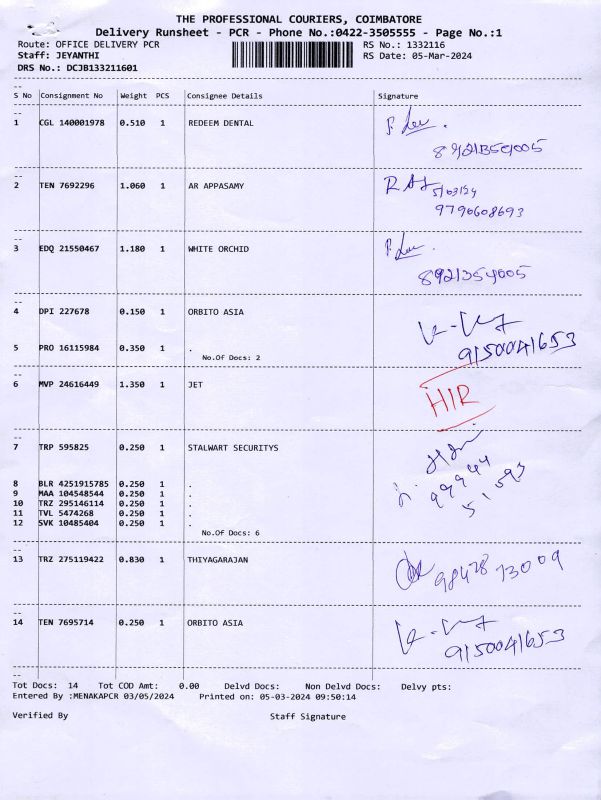 THE PROFESSIONAL COURIERS, COIMBATORE
Delivery Runsheet - PCR - Phone No.:0422-3505555 - Page No.:1
Route: OFFICE DELIVERY PCR RS No.: 1332116
Staff: JEYANTHI RS Date: 05-Mar-2024
DRS No.: DCJB133211601
S No Consignment No Weight PCS Consignee Details Signature
1 CGL 140001978 0.510 1 REDEEM DENTAL
2 TEN 7692296 1.060 1 AR APPASAMY
5/03/24
9790608693
3 EDQ 21550467 1.180 1 WHITE ORCHID
8921354005
4 DPI 227678 0.150 1 ORBITO ASIA
5 PRO 16115984 0.350 1 . 9150041653
No.Of Docs: 2
6 MVP 24616449 1.350 1 JET HIR
7 TRP 595825 0.250 1 STALWART SECURITYS
8 BLR 4251915785 0.250 1 .
9 MAA 104548544 0.250 1 .
10 TRZ 295146114 0.250 1 .
11 TVL 5474268 0.250 1 .
12 SVK 10485404 0.250 1 .
No.Of Docs: 6
13 TRZ 275119422 0.830 1 THIYAGARAJAN 98428 73009
14 TEN 7695714 0.250 1 ORBITO ASIA
9150041653
Tot Docs: 14 Tot COD Amt: 0.00 Delvd Docs: Non Delvd Docs: Delvy pts:
Entered By :MENAKAPCR 03/05/2024 Printed on: 05-03-2024 09:50:14
Verified By Staff Signature